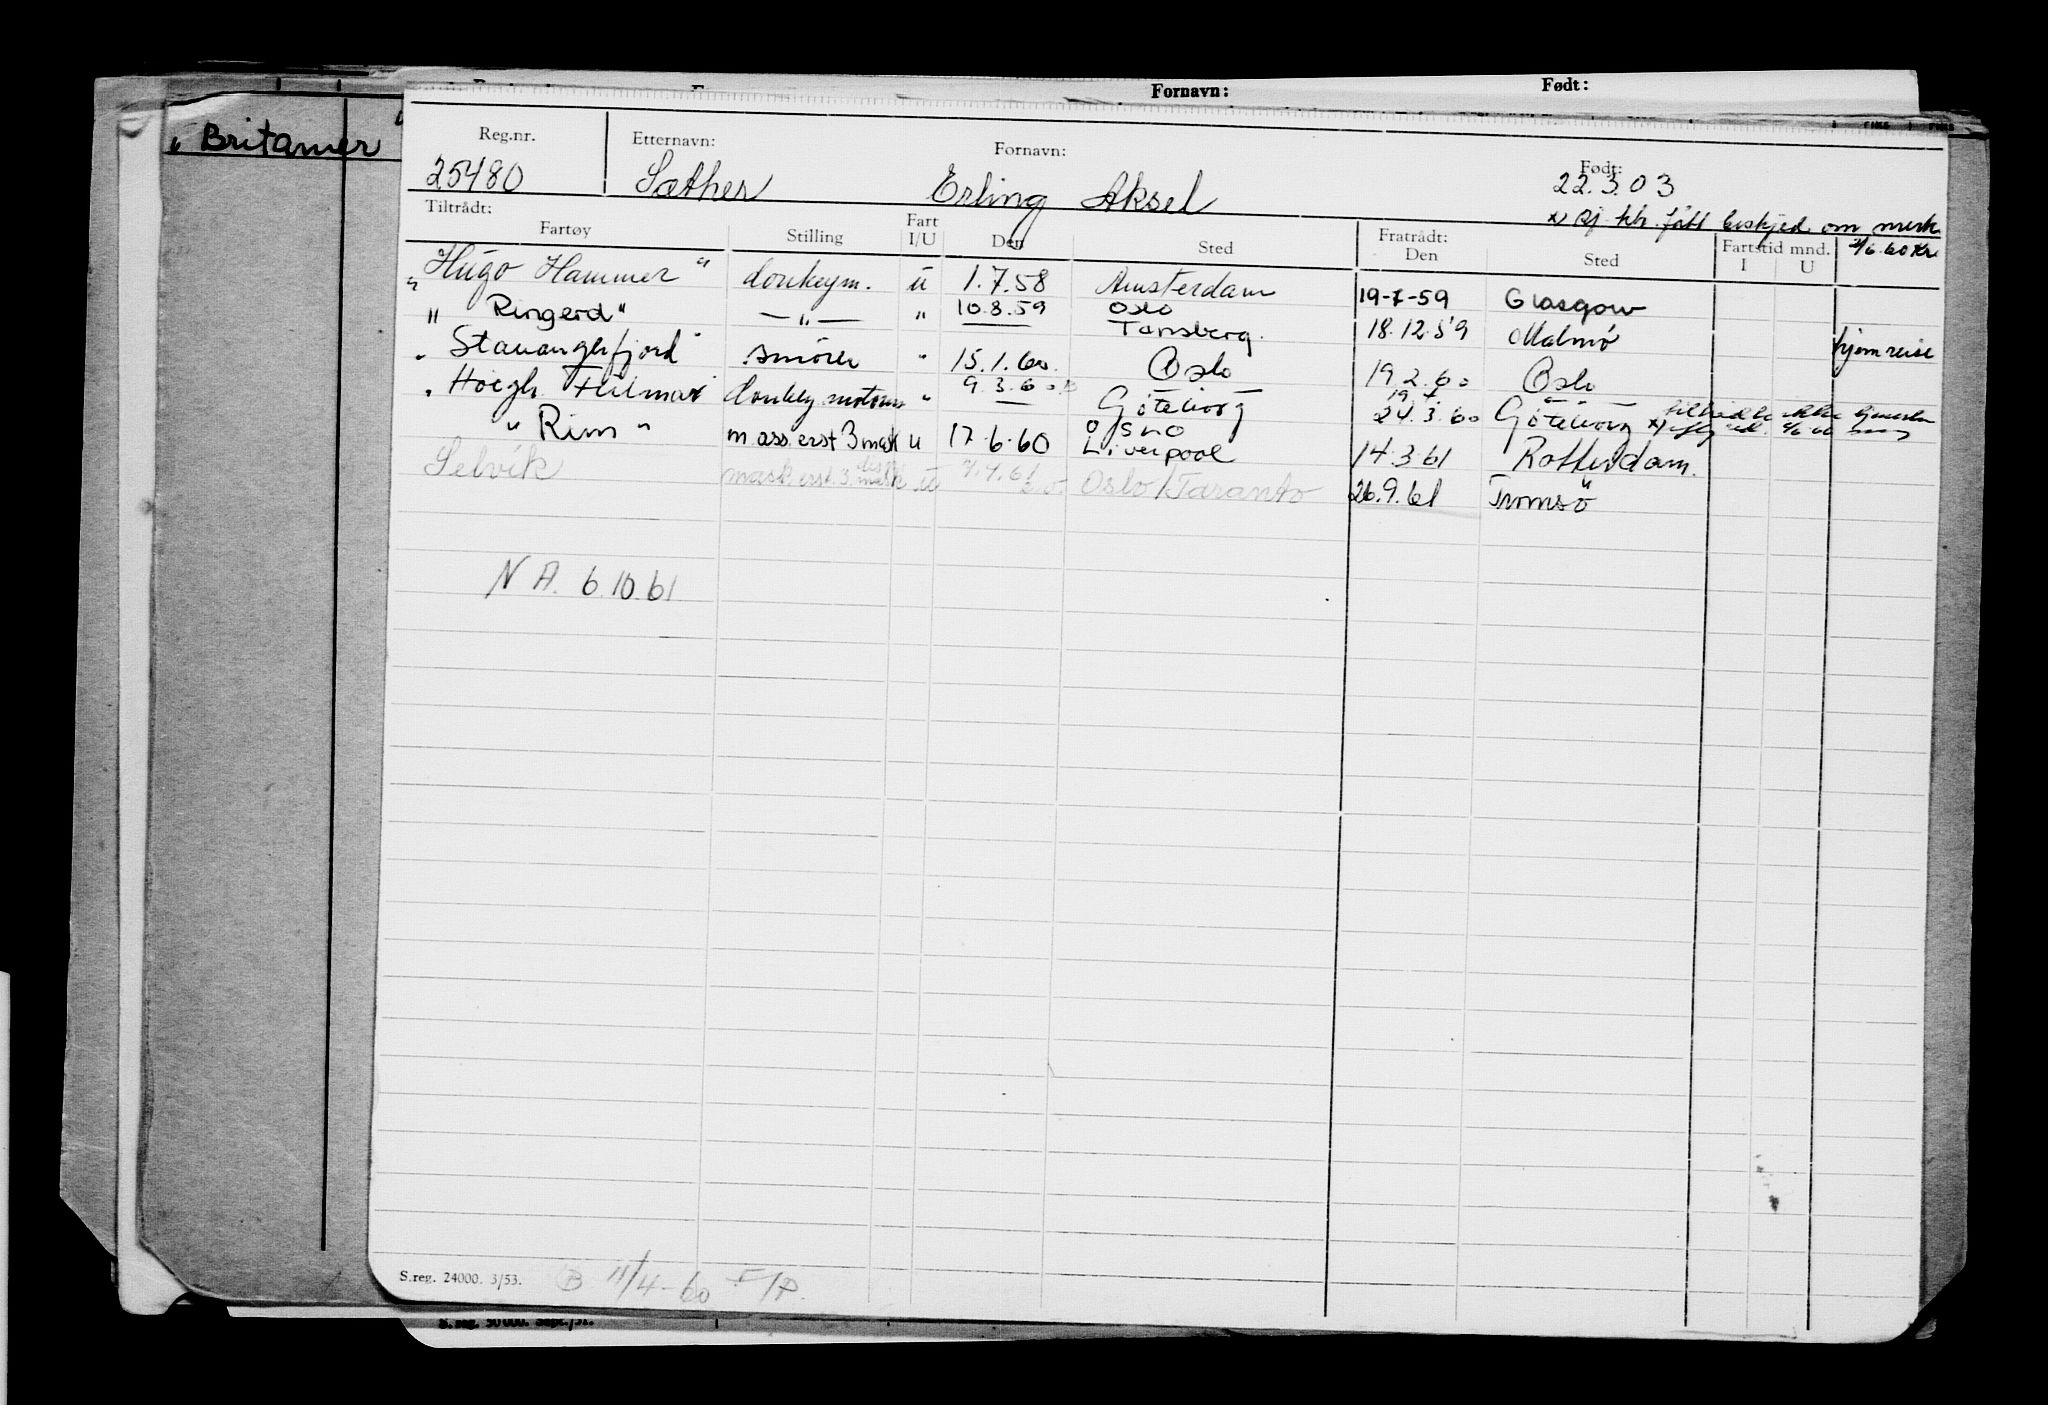 Fornavn: Født:
" Britamer
Reg.nr. Etternavn: Fornavn: Født:
25480 Sæther Erling Aksel 22.3.03
x) fått beskjed om merk
Tiltrådt: Fratrådt: Fartstid mnd. 2/6.60 Kr
Fartøy Stilling Fart I/U Den Sted Den Sted I U
" Hugo Hammer " donkeym. u 1.7.58 Amsterdam 19-7-59 Glasgow
" Ringerd " — " — " 10.8.59 Oslo Tønsberg. 18.12.59 Malmö hjemreise
" Stavangerfjord " smører " 15.1.60. Oslo 19 2.60 Oslo
" Höegh Hilmar donkey motorm " 9.3.60 Göteborg 24.3.60 Göteborg x)
" Rim " mass.erst 3 mask u 17.6.60 Oslo Liverpool 14.3.61 Rotterdam.
Selvik mask.erst. 3 mask u 7.4.61 Oslo/Taranto 26.9.61 Tromsö
N A. 6.10.61
S.reg. 24000. 3/53. B 11/4-60
S.reg. 50000. Sept./51.